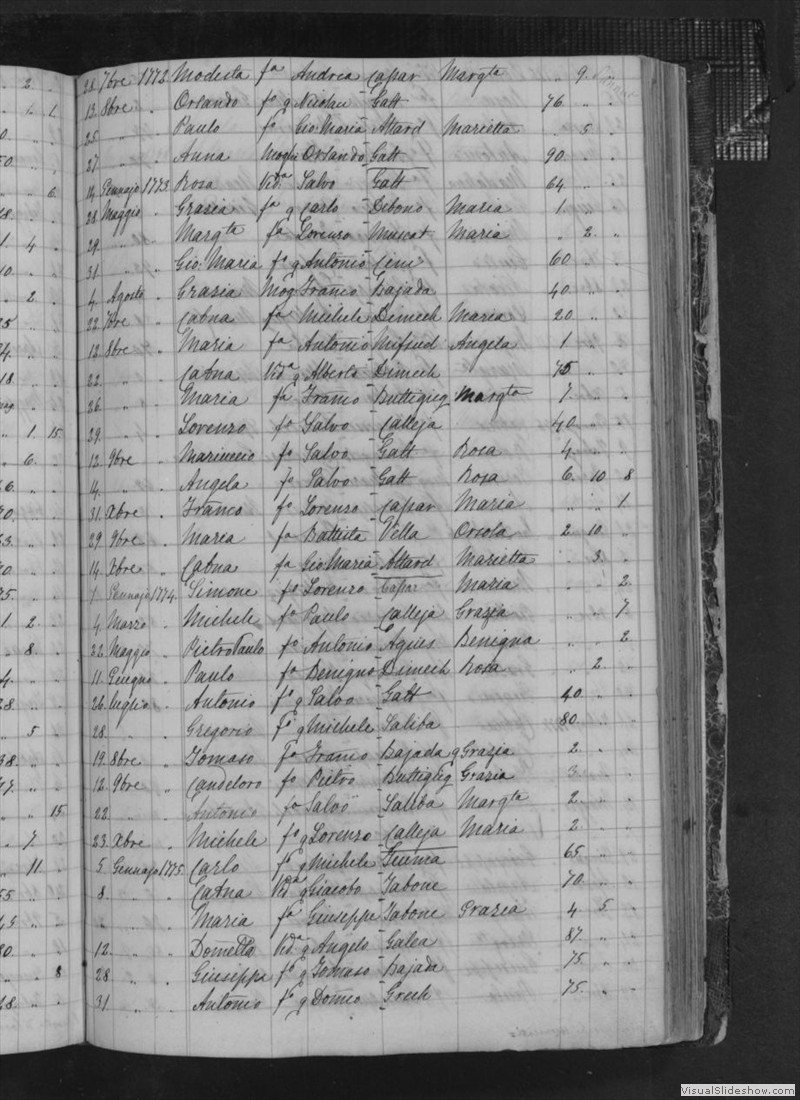 2 . 28. 7bre 1772 Modesta fa Andrea Capar Margta .. 9. ..
. 1. 1. 13. 8bre . Orlando fo q Nicolau Gatt 76. .. .
25 .. . Paulo fo Gio Maria Attard Marietta .. 5 .
27 .. . Anna Moglie Orlando Gatt 90. .. .
.. 6. 14. Gennajo 1773 Rosa Vda Salvo Gatt 64. .. .
28. Maggio . Grazia fa q Carlo Dibono Maria 1. .. .
1. 4 . 29. .. . Margta fa Lorenzo Muscat Maria . 2. ..
31. .. . Gio. Maria fo q Antonio Cini 60. .. .
. 2 . 4. Agosto . Grazia Mog Franco Bajada 40. .. .
22. 7bre . Catna fa Michele Dimech Maria 20 .. .
12. 8bre . Maria fa Antonio Mifsud Angela 1 .. .
22. .. . Catna Vda q Alberto Dimech 75 .. .
26. .. . Maria fa Franco Buttigieg Margta 7. .. .
.. 1. 15. 29. .. . Lorenzo fo Salvo Calleja 40. .. .
. 6. . 12. 9bre . Marinccio fo Salvo Gatt Rosa 4. .. .
14. .. . Angela fo Salvo Gatt Rosa 6. 10 8
31. Xbre . Franco fo Lorenzo Capar Maria . .. 1
29. 9bre . Maria fa Battista Villa Orsola 2. 10. ..
14. Xbre . Catna fa Gio Maria Attard Marietta . 3. .
1 Gennajo 1774. Simone fo Lorenzo Capar Maria . .. 2.
1 2 . 4. Marzo . Michele fo Paulo Calleja Grazia .. .. 7.
. 8 . 32. Maggio . Pietro Paulo fo Antonio Agius Benigna .. .. 2
11. Giugno . Paulo fo Benigno Dimech Rosa .. 2. .
26. luglio . Antonio fo q Salvo Gatt 40. .. .
.. 5 . 28. .. . Gregorio fo q Michele Saliba 80. .. .
38. .. . 19. 8bre . Tomaso fo Franco Bajada q Grazia 2. . .
12. 9bre . Candeloro fo Pietro Buttigieg Grazia 3. .. .
.. .. 15 22. .. . Antonio fo Salvo Saliba Margta 2. .. .
. 7. . 23. Xbre . Michele fo q Lorenzo Calleja Maria 2 .. .
.. 11. . 5 Gennajo 1775. Carlo fo q Michele Giuma 65. .. .
55 .. . 8. .. . Catna Vda q Giacobo Tabone 70. . .
.. .. . Maria fa Giuseppe Tabone Grazia 4 5. .
80. .. . 12. .. . Dometta Vda q Angelo Galea 87. .. .
.. .. 8 28 .. . Giuseppe fo q Tomaso Bajada 75. .. .
31. .. . Antonio fo q Domco Grech 75. .. .
VisualSlideshow.com